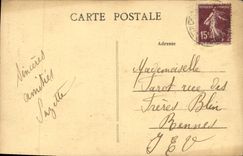 CARTE POSTALE
Adresse
15c
Sincères
amitiés
Suzette
Mademoiselle
Sarot rue des
Frères Blin
Rennes
I et V